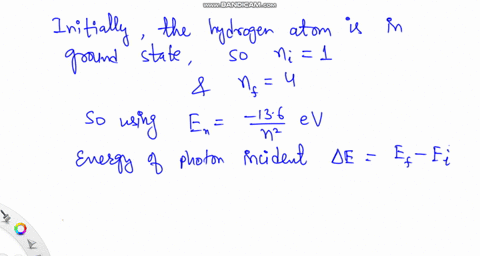 WWW.BANDICAM.COM
Initially, the hydrogen atom is in
ground state, so n_i = 1
& n_f = 4
So using E_n = -13.6/n² eV
Energy of photon incident ΔE = E_f - E_i